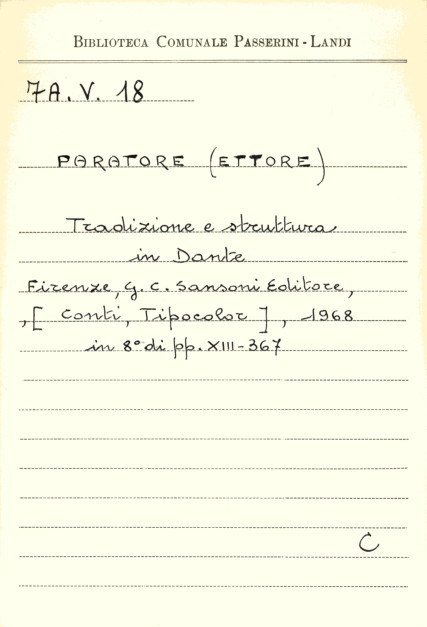 BIBLIOTECA COMUNALE PASSERINI - LANDI
7A. V. 18
PARATORE (ETTORE)
Tradizione e struttura
in Dante
Firenze, G. C. Sansoni Editore,
,[ Conti, Tipocolor ] , 1968
in 8° di pp. XIII - 367
C